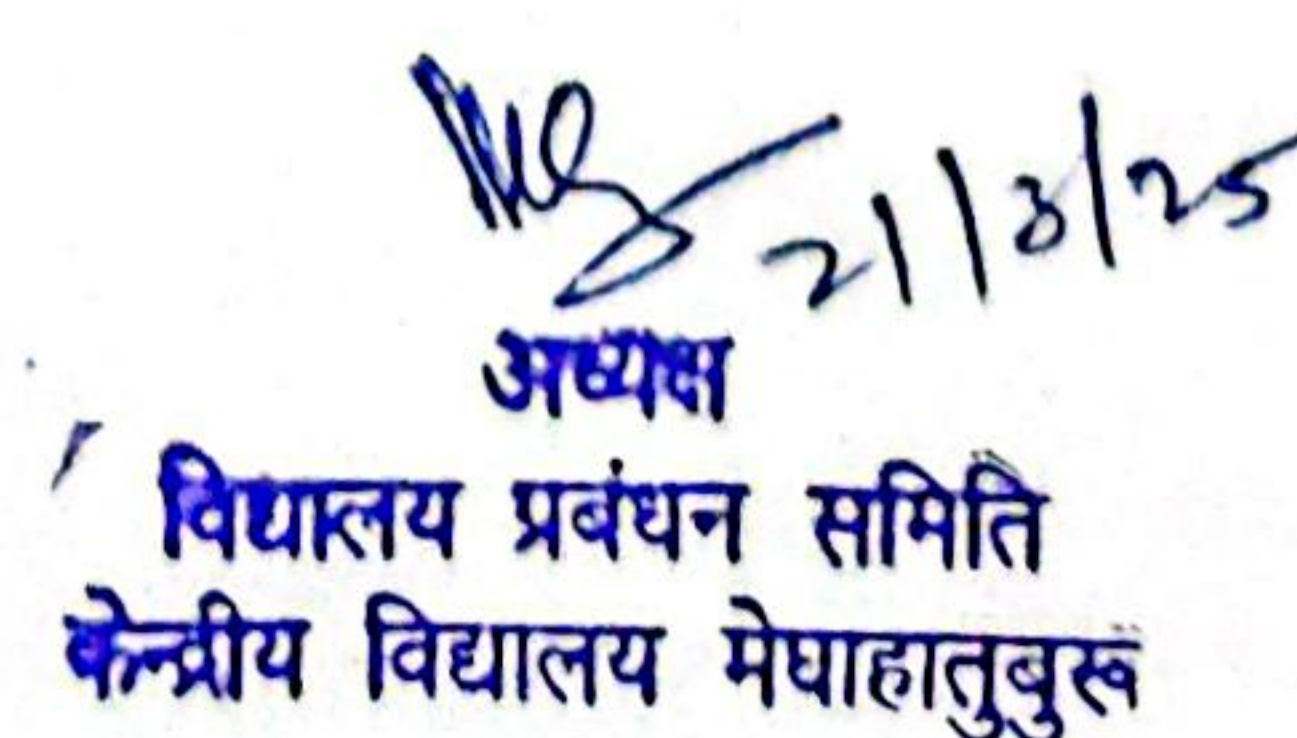 21/3/25
अध्यक्ष
विद्यालय प्रबंधन समिति
केन्द्रीय विद्यालय मेघाहातुबुरू